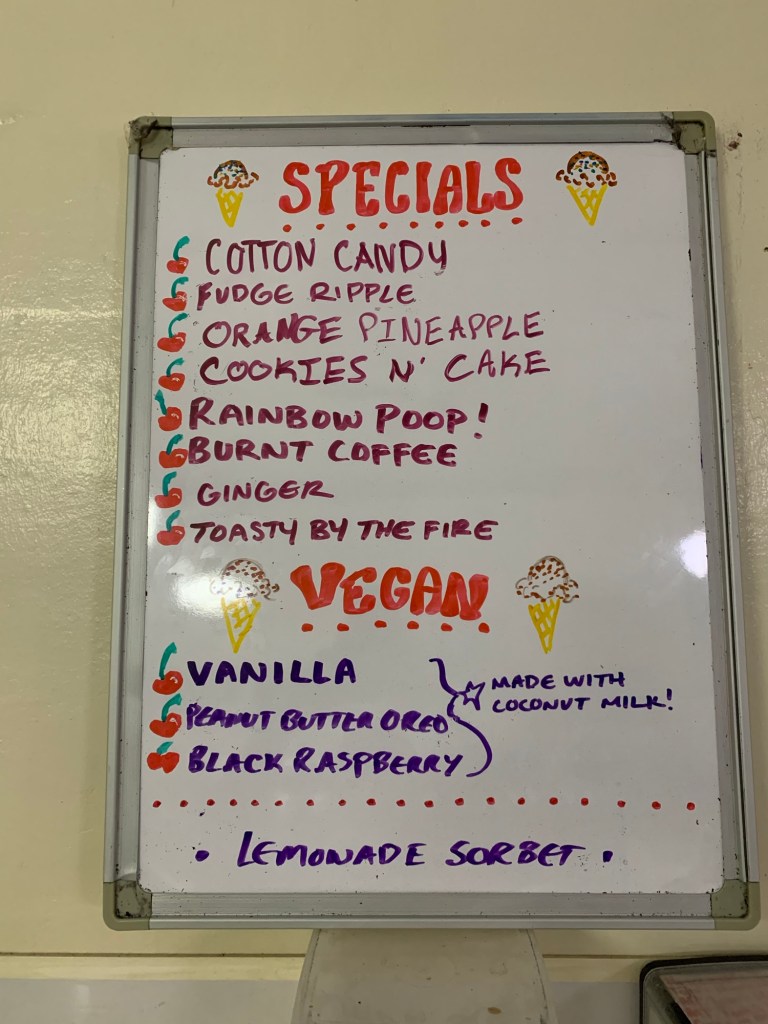 SPECIALS
COTTON CANDY
FUDGE RIPPLE
ORANGE PINEAPPLE
COOKIES N' CAKE
RAINBOW POOP!
BURNT COFFEE
GINGER
TOASTY BY THE FIRE
VEGAN
VANILLA
PEANUT BUTTER OREO
BLACK RASPBERRY
MADE WITH
COCONUT MILK!
• LEMONADE SORBET •